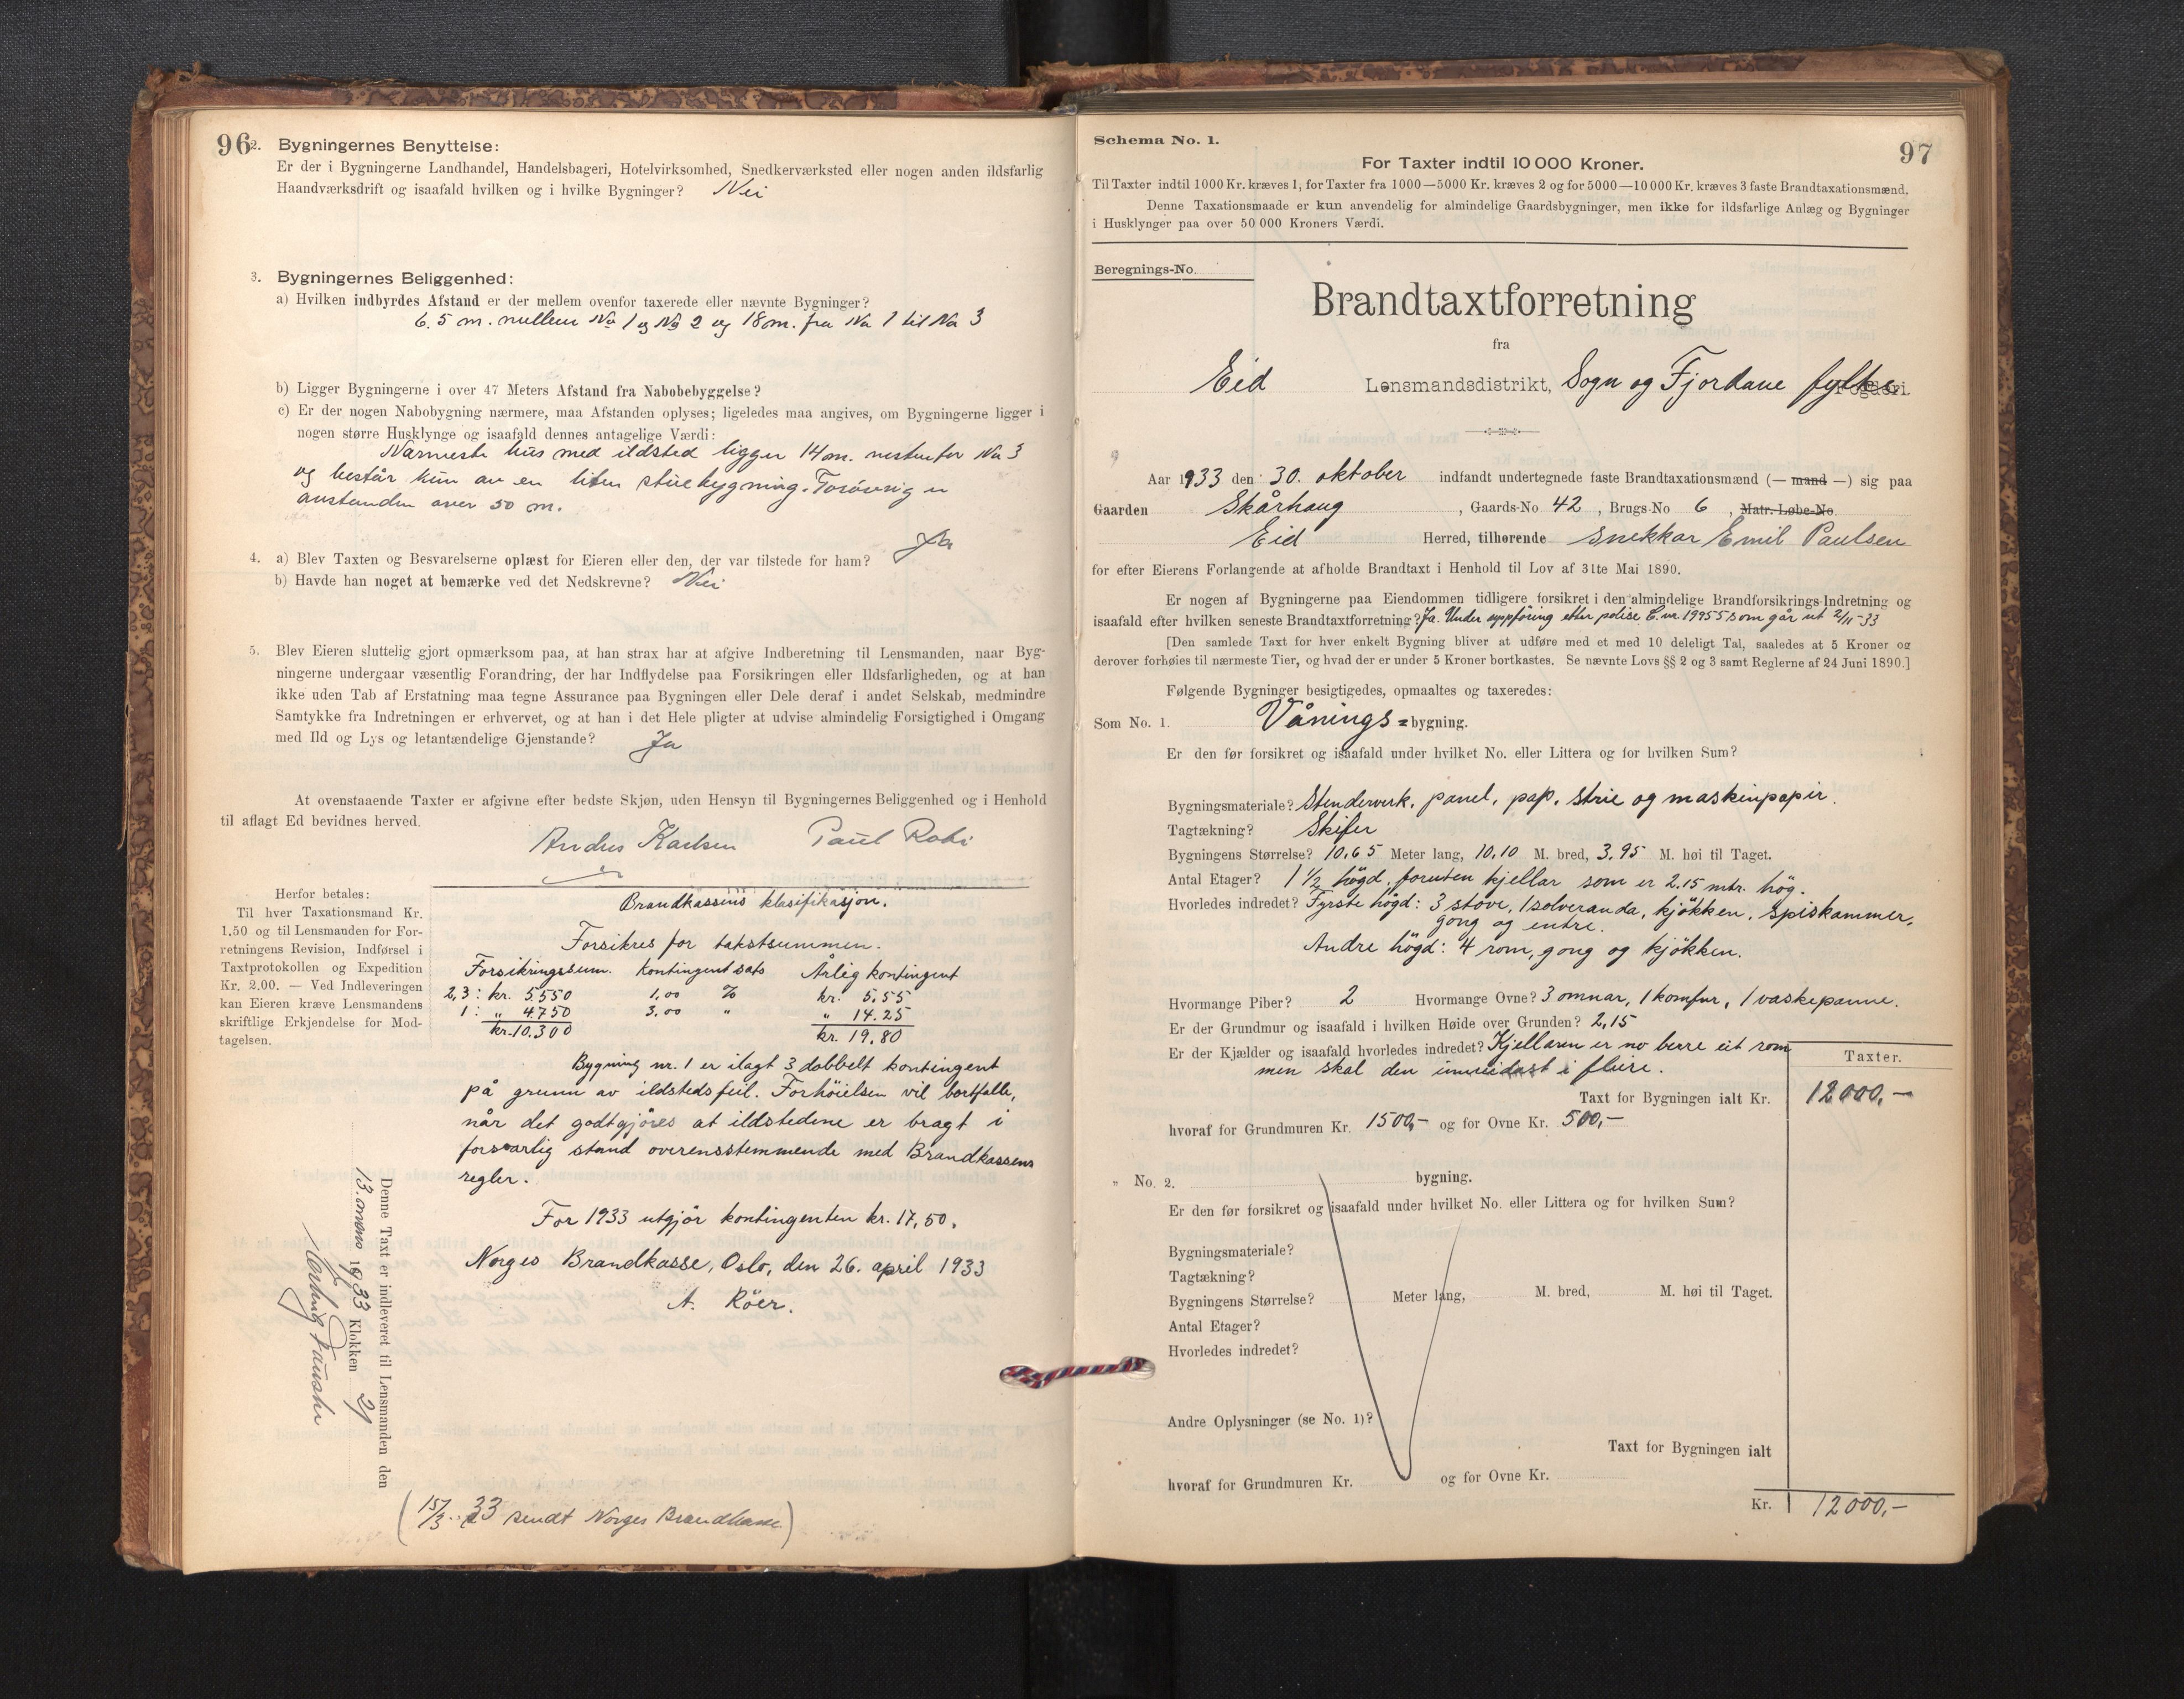 96
2. Bygningernes Benyttelse:
Er der i Bygningerne Landhandel, Handelsbageri, Hotelvirksomhed, Snedkerværksted eller nogen anden ildsfarlig
Haandværksdrift og isaafald hvilken og i hvilke Bygninger? Nei
3. Bygningernes Beliggenhed:
a) Hvilken indbyrdes Afstand er der mellem ovenfor taxerede eller nævnte Bygninger?
6.5 m. mellem No 1 og No 2 og 18 m. fra No 1 til No 3
b) Ligger Bygningerne i over 47 Meters Afstand fra Nabobebyggelse?
c) Er der nogen Nabobygning nærmere, maa Afstanden oplyses; ligeledes maa angives, om Bygningerne ligger i
nogen større Husklynge og isaafald dennes antagelige Værdi:
Nærmeste hus med ildsted ligger 14 m. nestenfor No 3
og består kun av en liten stuebygning. Forøvrig er
avstanden over 50 m.
4. a) Blev Taxten og Besvarelserne oplæst for Eieren eller den, der var tilstede for ham? Ja
b) Havde han noget at bemærke ved det Nedskrevne? Nei
5. Blev Eieren sluttelig gjort opmærksom paa, at han strax har at afgive Indberetning til Lensmanden, naar Byg-
ningerne undergaar væsentlig Forandring, der har Indflydelse paa Forsikringen eller Ildsfarligheden, og at han
ikke uden Tab af Erstatning maa tegne Assurance paa Bygningen eller Dele deraf i andet Selskab, medmindre
Samtykke fra Indretningen er erhvervet, og at han i det Hele pligter at udvise almindelig Forsigtighed i Omgang
med Ild og Lys og letantændelige Gjenstande? Ja
At ovenstaaende Taxter er afgivne efter bedste Skjøn, uden Hensyn til Bygningernes Beliggenhed og i Henhold
til aflagt Ed bevidnes herved.
Karlsen Paul
Herfor betales:
Til hver Taxationsmand Kr.
1.50 og til Lensmanden for For-
retningens Revision, Indførsel i
Taxtprotokollen og Expedition
Kr. 2.00. — Ved Indleveringen
kan Eieren kræve Lensmandens
skriftlige Erkjendelse for Mod-
tagelsen.
Brandkassens klasifikasjon.
Forsikres for takstsummen.
Forsikringssum. Kontingentsats Årlig kontingent
2,3: kr. 5550 1.00 % kr. 5.55
1: " 4750 3.00 " " 14.25
kr. 10.300 kr. 19.80
Bygning nr. 1 er ilagt 3 dobbelt kontingent
på grunn av ildstedsfeil. Forhöielsen vil bortfalle,
når det godtgjöres at ildstedene er bragt i
forsvarlig stand overensstemmende med Brandkassens
regler.
For 1933 utgjör kontingenten kr. 17,50.
Norges Brandkasse, Oslo, den 26. april 1933
A. Röer.
Denne Taxt er indleveret til Lensmanden den
13. mars 1933 Klokken 21
(15/3 - 33 sendt Norges Brandkasse)
97
Schema No. 1.
For Taxter indtil 10 000 Kroner.
Til Taxter indtil 1000 Kr. kræves 1, for Taxter fra 1000—5000 Kr. kræves 2 og for 5000—10 000 Kr. kræves 3 faste Brandtaxationsmænd.
Denne Taxationsmaade er kun anvendelig for almindelige Gaardsbygninger, men ikke for ildsfarlige Anlæg og Bygninger
i Husklynger paa over 50 000 Kroners Værdi.
Beregnings-No.
Brandtaxtforretning
fra
Eid Lensmandsdistrikt, Sogn og Fjordane fylke Fogderi.
Aar 1933 den 30. oktober indfandt undertegnede faste Brandtaxationsmænd (— mand —) sig paa
Gaarden Skårhaug, Gaards-No 42, Brugs-No 6, Matr. Løbe-No.
Eid Herred, tilhørende snekkar Emil Paulsen
for efter Eierens Forlangende at afholde Brandtaxt i Henhold til Lov af 31te Mai 1890.
Er nogen af Bygningerne paa Eiendommen tidligere forsikret i den almindelige Brandforsikrings-Indretning og
isaafald efter hvilken seneste Brandtaxtforretning? Ja. Under uppföring etter polise C. nr. 19955 som går ut 2/11-33
[Den samlede Taxt for hver enkelt Bygning bliver at udføre med et med 10 deleligt Tal, saaledes at 5 Kroner og
derover forhøies til nærmeste Tier, og hvad der er under 5 Kroner bortkastes. Se nævnte Lovs §§ 2 og 3 samt Reglerne af 24 Juni 1890.]
Følgende Bygninger besigtigedes, opmaaltes og taxeredes:
Som No. 1. Vånings-bygning.
Er den før forsikret og isaafald under hvilket No. eller Littera og for hvilken Sum?
Bygningsmateriale? Stenderverk, panel, pap, strie og maskinpapir.
Tagtækning? Skifer
Bygningens Størrelse? 10.65 Meter lang, 10.10 M. bred, 3.95 M. høi til Taget.
Antal Etager? 1 1/2 högd, foruten kjellar som er 2.15 mtr. hög.
Hvorledes indredet? Fyrste högd: 3 stover, 1 solveranda, kjökken, spiskammer,
gong og entre.
Andre högd: 4 rom, gong og kjökken.
Hvormange Piber? 2 Hvormange Ovne? 3 omnar, 1 komfur, 1 vaskepanne.
Er der Grundmur og isaafald i hvilken Høide over Grunden? 2,15
Er der Kjælder og isaafald hvorledes indredet? Kjellaren er no berre eit rom
men skal den innreidast i fleire.
Taxter.
Taxt for Bygningen ialt Kr. 12000,-
hvoraf for Grundmuren Kr. 1500,- og for Ovne Kr. 500,-
" No. 2. bygning.
Er den før forsikret og isaafald under hvilket No. eller Littera og for hvilken Sum?
Bygningsmateriale?
Tagtækning?
Bygningens Størrelse? Meter lang, M. bred, M. høi til Taget.
Antal Etager?
Hvorledes indredet?
Andre Oplysninger (se No. 1)?
Taxt for Bygningen ialt
hvoraf for Grundmuren Kr. og for Ovne Kr.
Kr. 12000,-